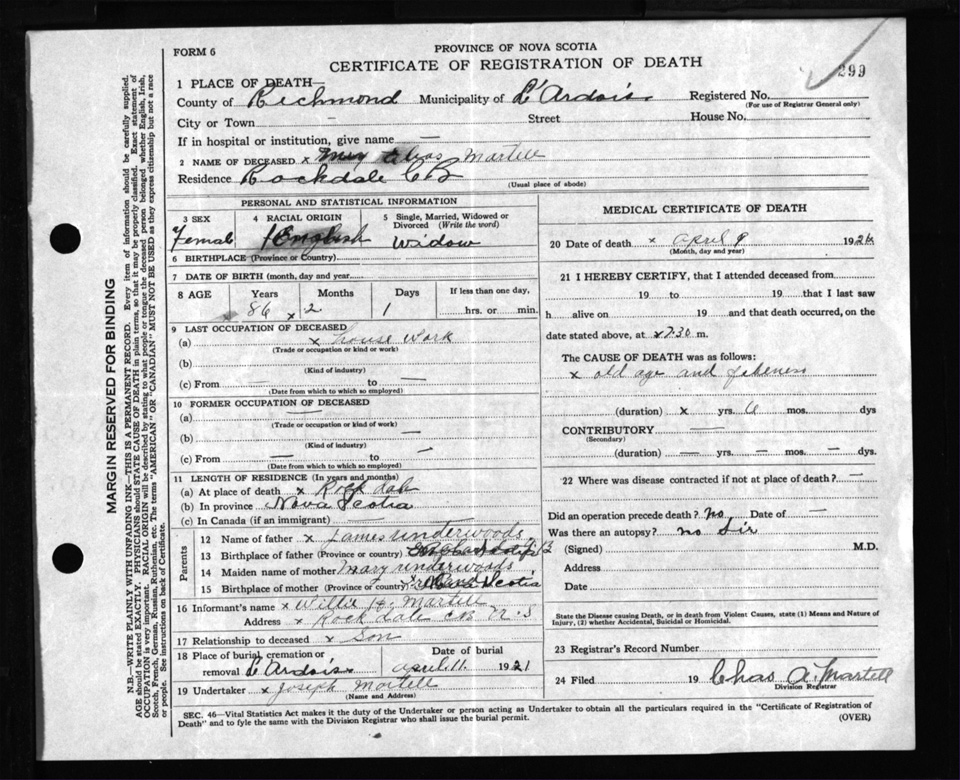 FORM 6
PROVINCE OF NOVA SCOTIA
CERTIFICATE OF REGISTRATION OF DEATH
299
1 PLACE OF DEATH—
County of Richmond Municipality of L'Ardois Registered No.
(For use of Registrar General only)
City or Town — Street House No.
If in hospital or institution, give name —
2 NAME OF DECEASED x Martell
Residence Rockdale CB
(Usual place of abode)
PERSONAL AND STATISTICAL INFORMATION
3 SEX 4 RACIAL ORIGIN 5 Single, Married, Widowed or Divorced (Write the word)
Female English Widow
6 BIRTHPLACE (Province or Country)
7 DATE OF BIRTH (month, day and year)
8 AGE Years Months Days If less than one day,
86 x 2 1 hrs. or min.
9 LAST OCCUPATION OF DECEASED
(a) x house work
(Trade or occupation or kind or work)
(b)
(Kind of industry)
(c) From — to —
(Date from which to which so employed)
10 FORMER OCCUPATION OF DECEASED
(a) —
(Trade or occupation or kind of work)
(b) —
(Kind of industry)
(c) From — to —
(Date from which to which so employed)
11 LENGTH OF RESIDENCE (In years and months)
(a) At place of death x Rock dale
(b) In province Nova Scotia
(c) In Canada (if an immigrant)
Parents
12 Name of father x James Underwoods
13 Birthplace of father (Province or country)
14 Maiden name of mother Mary Underwoods
15 Birthplace of mother (Province or country) Nova Scotia
16 Informant's name x Willie Martell
Address x Rock dale CB N.S
17 Relationship to deceased x Son
18 Place of burial, cremation or removal L'Ardois Date of burial April 11 1921
19 Undertaker x Joseph Martell
(Name and Address)
MEDICAL CERTIFICATE OF DEATH
20 Date of death x April 9 192
(Month, day and year)
21 I HEREBY CERTIFY, that I attended deceased from
19 to 19 that I last saw
h alive on 19 and that death occurred, on the
date stated above, at x 7:30 m.
The CAUSE OF DEATH was as follows:
x old age and
(duration) x yrs. 6 mos. dys
CONTRIBUTORY —
(Secondary)
(duration) — yrs. — mos. — dys.
22 Where was disease contracted if not at place of death? —
Did an operation precede death? No Date of —
Was there an autopsy? no Sir
(Signed) M.D.
Address
Date
State the Disease causing Death, or in death from Violent Causes, state (1) Means and Nature of
Injury, (2) whether Accidental, Suicidal or Homicidal.
23 Registrar's Record Number
24 Filed 19 Chas A. Martell
Division Registrar
SEC. 46—Vital Statistics Act makes it the duty of the Undertaker or person acting as Undertaker to obtain all the particulars required in the "Certificate of Registration of
Death" and to fyle the same with the Division Registrar who shall issue the burial permit.
(OVER)
MARGIN RESERVED FOR BINDING
N.B.—WRITE PLAINLY WITH UNFADING INK—THIS IS A PERMANENT RECORD. Every item of information should be carefully supplied.
AGE should be stated EXACTLY. PHYSICIANS should STATE CAUSE OF DEATH in plain terms, so that it may be properly classified. Exact statement of
OCCUPATION is very important. RACIAL ORIGIN will be described by stating to what people or tongue the deceased person belonged whether English, Irish,
Scotch, French, German, Russian, Ruthenian, etc. The terms "AMERICAN" or "CANADIAN" MUST NOT BE USED as they express citizenship but not a race
or people. See instructions on back of Certificate.